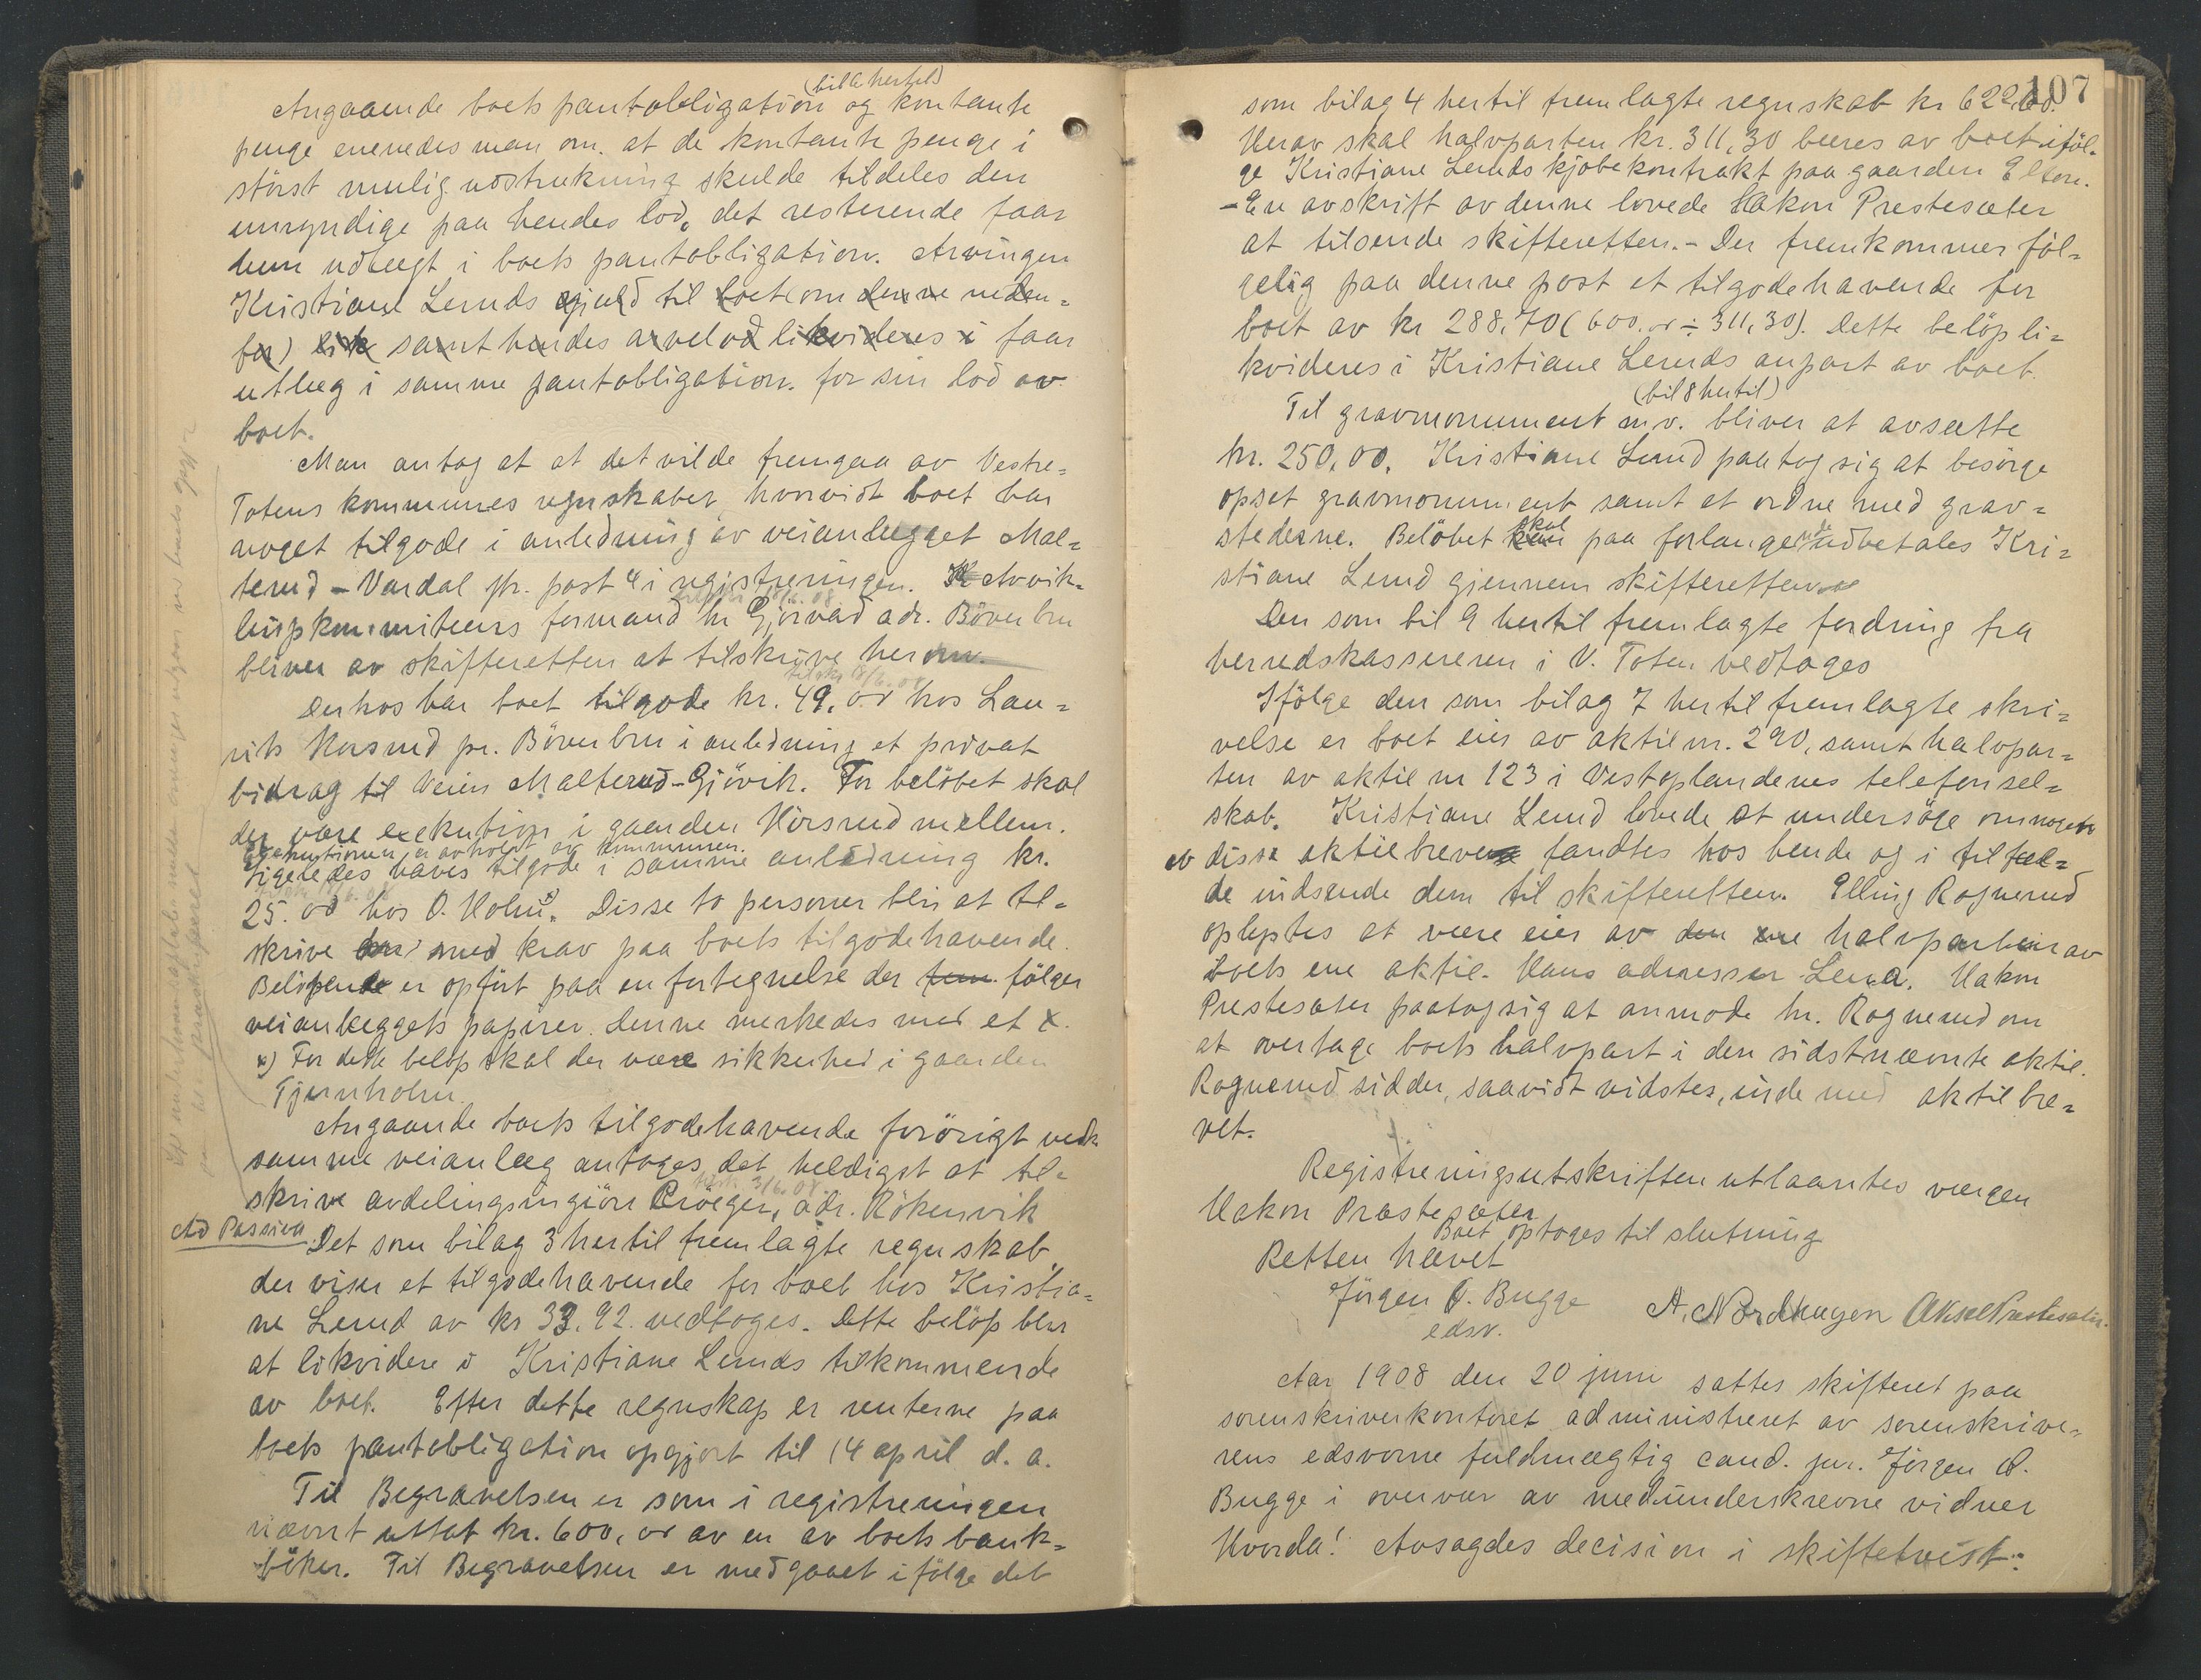 (bil 6 hertil)
Angaaende boets pantobligation og kontante
penge enenedes man om at de kontante penge i
störst mulig utstrækning skulde tildeles den
umyndige paa hendes lod, det resterende faar
hun udlægt i boets pantobligation. Arvingen
Kristiane Lerruds gjæld til boet om denne neden-
for) samt hendes arvelod likvideres i faar
utlæg i samme pantobligation for sin lod av
boet.
Man antog at at det vilde fremgaa av Vestre-
Totens kommunes regnskaber, hvorvidt boet har
noget tilgode i anledning av veianlegget Mal-
terud - Vardal jfr. post 4 i registreringen. Avvik-
lingskommiteens formand hr Gjörvad adr. Böverbru
bliver av skifteretten at tilskrive herom.
Derhos har boet tilgode kr. 49.00 hos Lau-
rits Horsrud pr. Böverbru i anledning et privat
bidrag til Veien Malterud - Gjövik. For belöbet skal
der være exekution i gaarden Hörsrud mellem.
Exekutionen er avholdt av kommunen.
Ligeledes haves tilgode i samme anledning kr.
25.00 hos O. Holm x). Disse to personer blir at til-
skrive med krav paa boets tilgodehavende.
Belöpende er opfört paa en fortegnelse der fölger
veianleggets papirer. Denne merkedes med et x.
x) For dette belöp skal der være sikkerhed i gaarden
Tjernholm.
Angaaende boets tilgodehavende forövrigt vedk.
samme veianlæg antoges det heldigst at til-
skrive avdelingsingiör Cröger, adr. Rökenvik
Ad Passiva. Det som bilag 3 hertil fremlagte regnskab
der viser et tilgodehavende for boet hos Kristia-
ne Lerrud av kr 33.92 vedtoges. Dette belöp blir
at likvidere i Kristiane Lerruds tilkommende
av boet. Efter dette regnskap er renterne paa
boets pantobligation opgjort til 14 april d. a.
Til Begravelsen er som i registreringen
nævnt uttat kr. 600,00 av en av boets bank-
böker. Til Begravelsen er medgaaet ifölge det
107
som bilag 4 hertil fremlagte regnskab kr 622,60.
Herav skal halvparten kr. 311,30 bæres av boet iföl-
ge Kristiane Lerruds kjöbekontrakt paa gaarden Elton.
- En avskrift av denne lovede Hakon Prestesæter
at tilsende skifteretten. - Der fremkommer föl-
gelig paa denne post et tilgodehavende for
boet av kr 288,70 (600.00 ÷ 311,30). Dette belöp li-
kvideres i Kristiane Lerruds anpart av boet.
(bil 8 hertil)
Til gravmonument m.v. bliver at avsætte
kr. 250,00. Kristiane Lerrud paatog sig at besörge
opsat gravmonument samt at ordne med grav-
stederne. Belöbet kan skal paa forlangende udbetales Kri-
stiane Lerrud gjennem skifteretten.
Den som bil 9 hertil fremlagte fordring fra
herredskassereren i V. Toten vedtoges
Ifölge den som bilag 7 hertil fremlagte skri-
velse er boet eier av aktie nr. 290, samt halvpar-
ten av aktie nr 123 i Vestoplandenes telefonsel-
skab. Kristiane Lerrud lovede at undersöge om nogen
av disse aktiebreve fandtes hos hende og i tilfæl-
de indsende dem til skifteretten. Elling Rognerud
oplystes at være eier av den ene halvparten av
boets ene aktie. Hans adresse er Lena. Hakon
Prestesæter paatog sig at anmode hr. Rognerud om
at overtage boets halvpart i den sidstnævnte aktie.
Rognerud sidder, saavidt vidstes, inde med aktiebre-
vet.
Registreringsutskriften utlaantesværgen
Hakon Præstesæter
Boet optoges til slutning
Retten hævet
Jörgen A. Bugge
edsv.
A. Nordhagen Aksel Prestesæter.
Aar 1908 den 20 juni sattes skifteret paa
sorenskriverkontoret administreret av sorenskrive-
rens edsvorne fuldmægtig cand. jur. Jörgen A.
Bugge i overvær av medunderskrevne vidner
Hvorda! Avsagdes decision i skiftetvist: